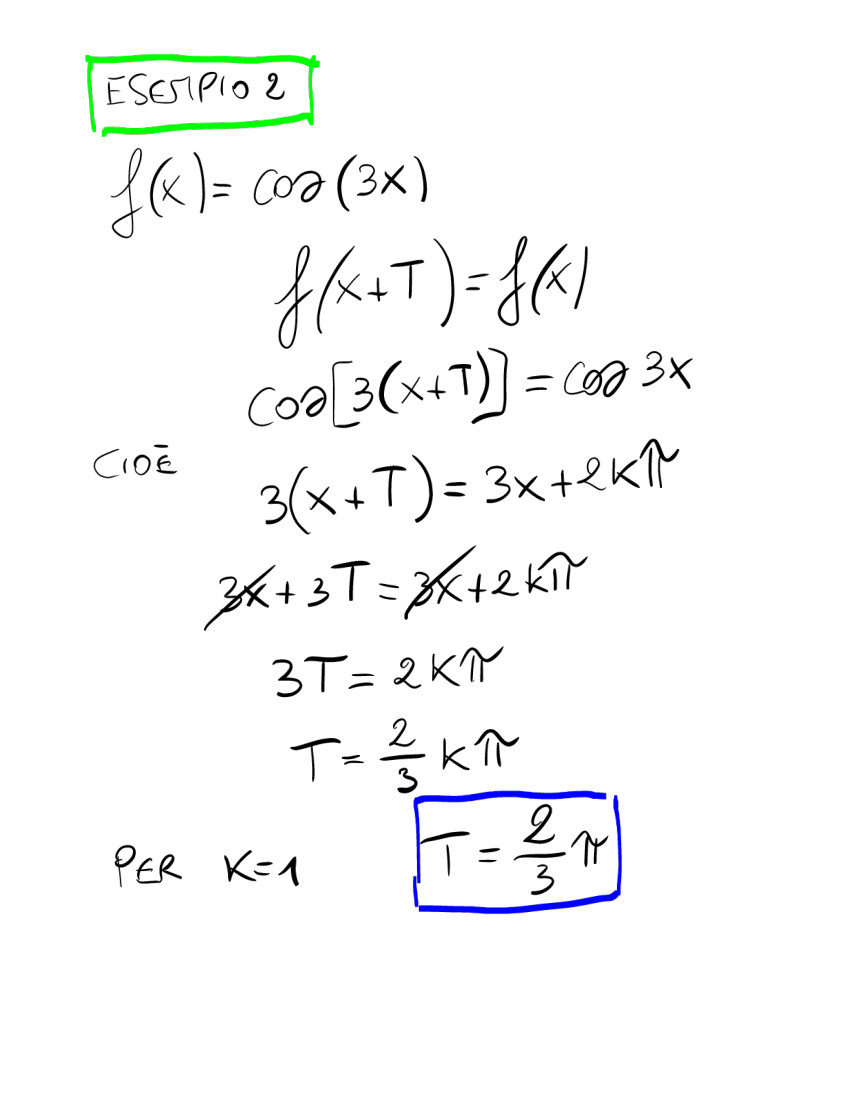 ESEMPIO 2
f(x) = cos(3x)
f(x+T) = f(x)
cos[3(x+T)] = cos 3x
CIOÈ 3(x+T) = 3x+2kπ
3x+3T = 3x+2kπ
3T = 2kπ
T = 2/3 kπ
PER K=1 T = 2/3 π